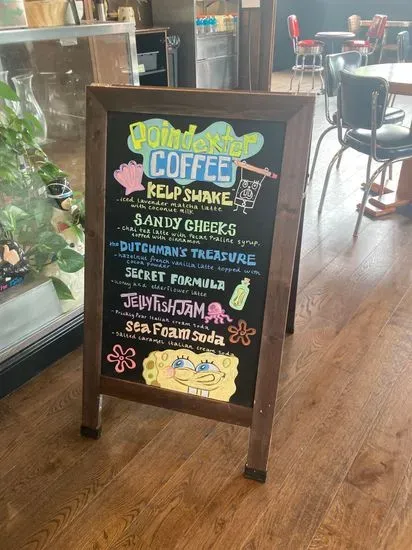 Poindexter
COFFEE
KELP SHAKE
- iced lavender matcha latte
with coconut milk
SANDY CHEEKS
- chai tea latte with Pecan Praline syrup,
topped with cinnamon
the DUTCHMAN'S TREASURE
- hazelnut french vanilla latte topped with
cocoa powder
SECRET FORMULA
- honey and elderflower latte
JELLYFISH JAM
- Prickly Pear italian cream soda
Sea Foam Soda
- Salted caramel italian cream soda